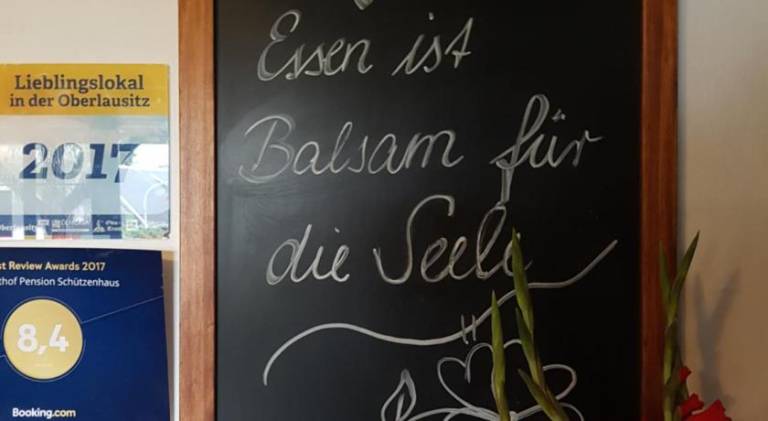 Essen ist
Balsam für
die Seele
Lieblingslokal
in der Oberlausitz
2017
st Review Awards 2017
hof Pension Schützenhaus
8,4
Booking.com